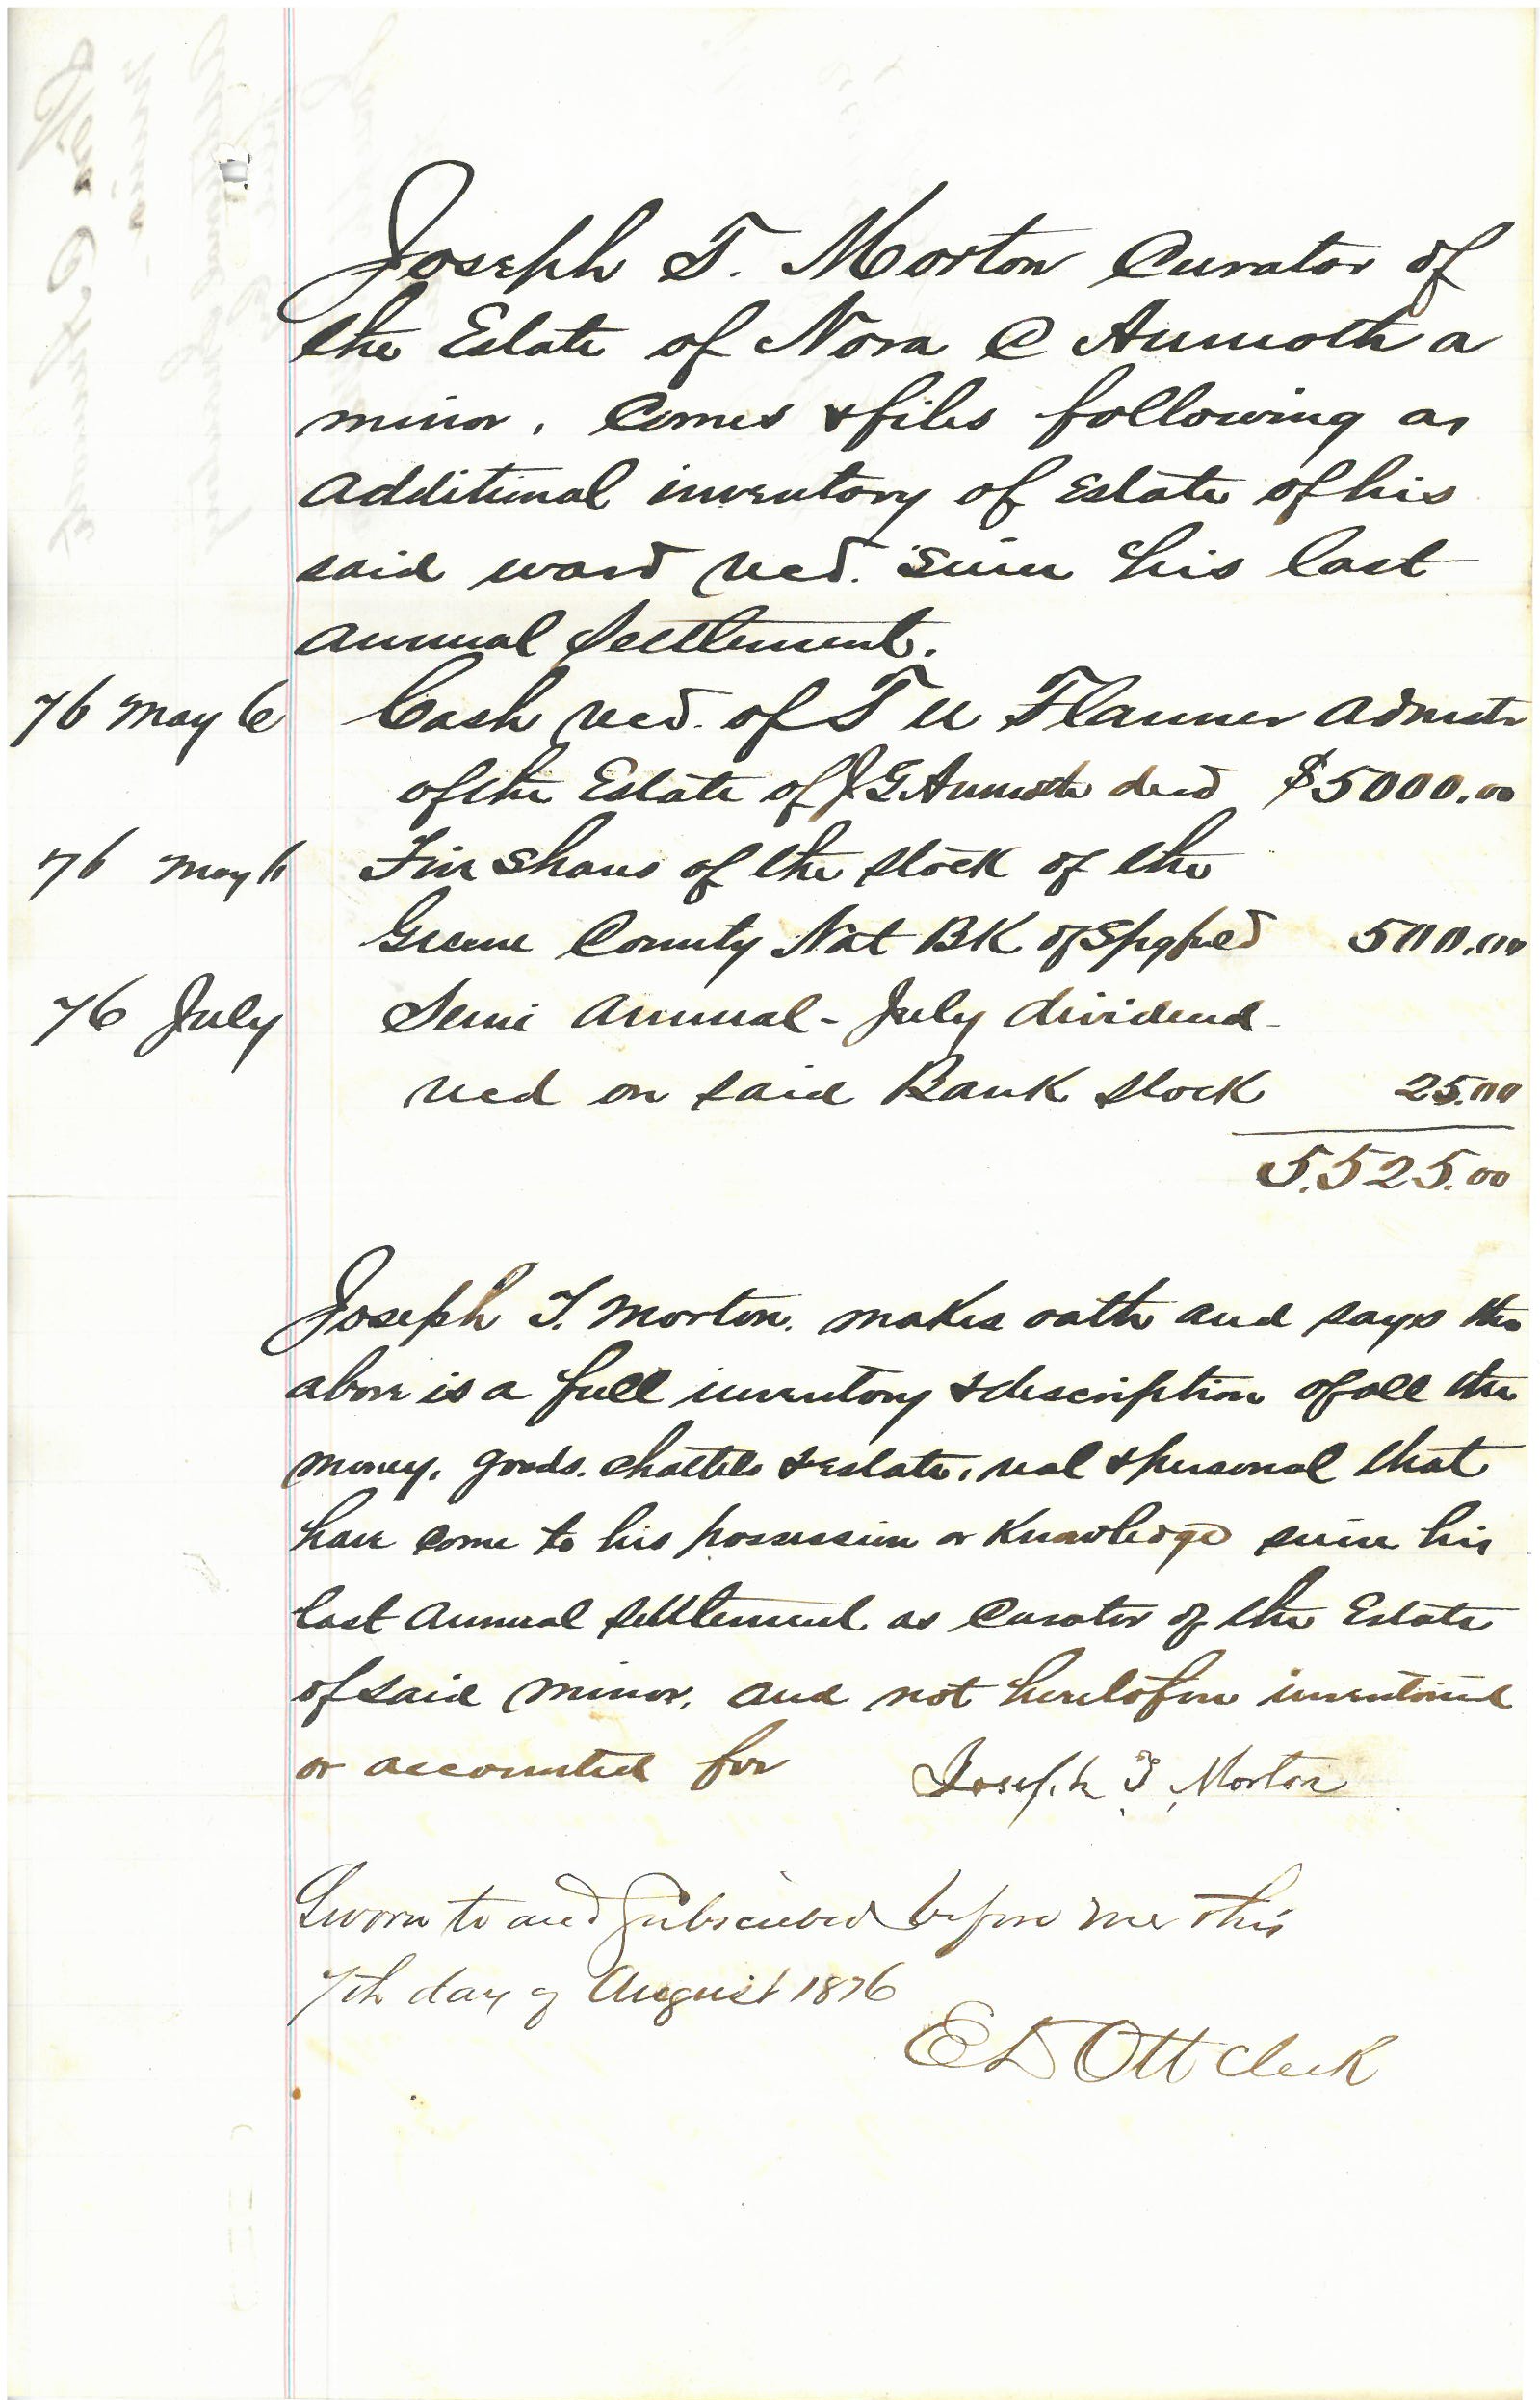 Joseph T. Morton Curator of
the Estate of Nora C Aumoth a
minor. Comes & files following as
additional inventory of Estate of his
said ward recd. since his last
annual settlement.
76 May 6 Cash recd. of T U Flanner Admstr
of the Estate of J G Aumoth decd $5000.00
76 May 6 Five Shares of the stock of the
Greene County Nat BK of Spgfied 500.00
76 July Semi annual - July dividend -
recd on said Bank stock 25.00
5.525.00
Joseph T. Morton. makes oath and says the
above is a full inventory & description of all the
money. goods. chattels & estate. real & personal that
have come to his possession or Knowledge since his
last annual settlement as Curator of the Estate
of said minor, and not heretofore inventoried
or accounted for Joseph T Morton
Sworn to and Subscribed before me this
7th day of August 1876
E D Ott Clerk